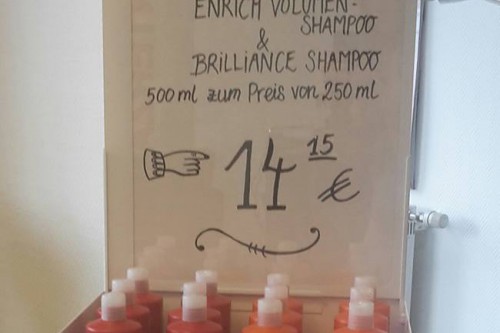 ENRICH VOLUMEN-
SHAMPOO
&
BRILLIANCE SHAMPOO
500 ml zum Preis von 250 ml
14 15 €